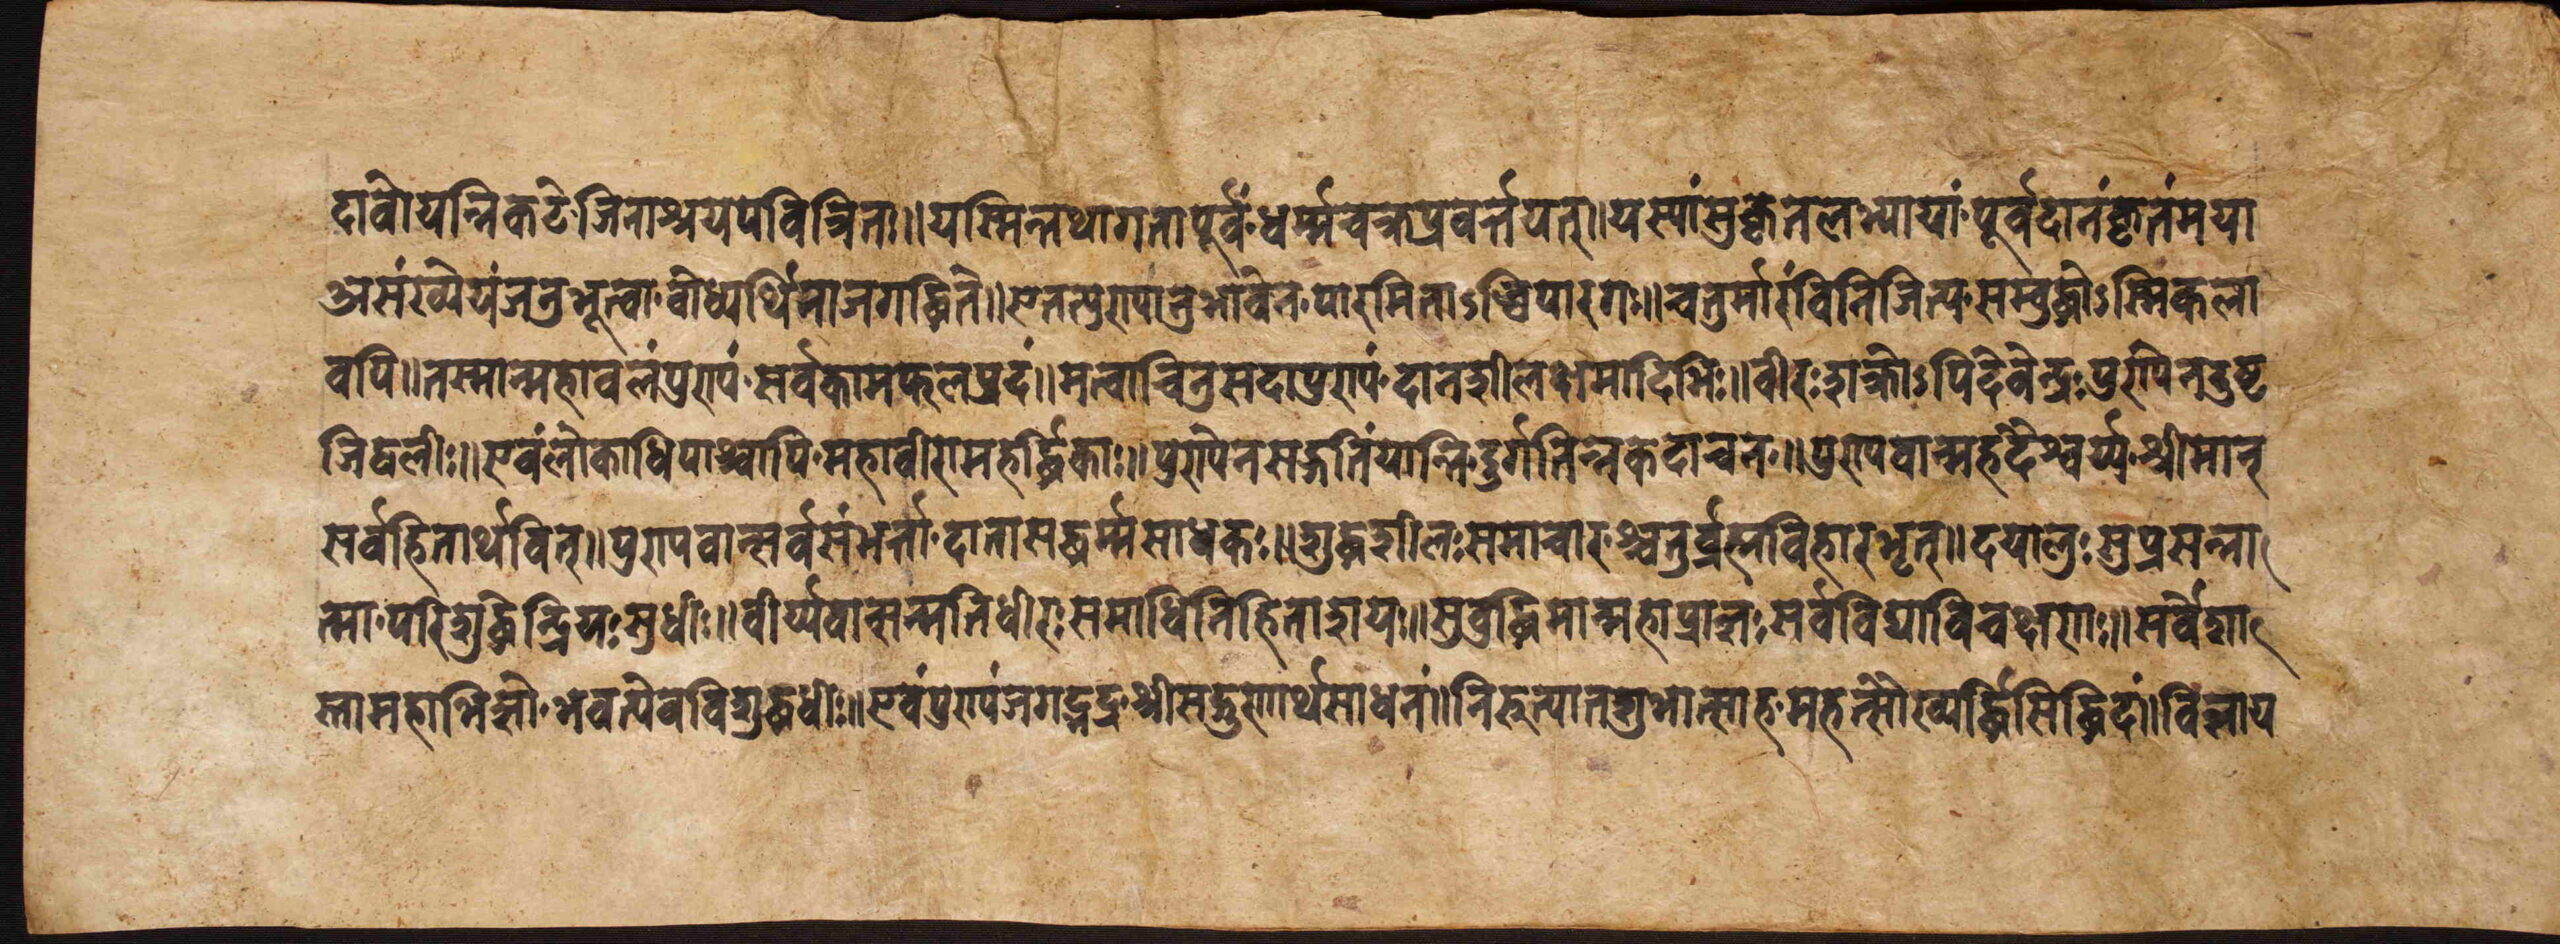 दावो यन्निकटे जिनाश्रयपवित्रितः॥ यस्मिन्तथागता पूर्वं धर्म्मचक्रप्रवर्त्तयत्॥ यस्यां सुकृतलभ्यायां पूर्वदानं कृतं मया
असंख्येयं जनुभूत्वा बोध्यर्थिना जगद्धिते॥ एतत्पुण्यानुभावेन पारमिताऽब्धिपारगः॥ चतुर्मारं विनिजित्य सम्बुद्धोऽस्मि कला
वपि॥ तस्मान्महाबलं पुण्यं सर्वकामफलप्रदं॥ मत्वा चिनु सदा पुण्यं दानशीलक्षमादिभिः॥ वीरः शक्रोऽपि देवेन्द्रः पुण्येन दुष्ट
जिद्बली॥ एवं लोकाधिपाश्चापि महावीरा महर्द्धिकाः॥ पुण्येन सङ्गतिं यान्ति दुर्गतिन्न कदाचन॥ पुण्यवान्महदैश्वर्य्य श्रीमान्
सर्वहितार्थवित्॥ पुण्यवान्सर्वसंभर्त्ता दाता सद्धर्म्मसाधकः॥ शुद्धशीलः समाचार श्चतुर्ब्रह्मविहारभृत्॥ दयालुः सुप्रसन्ना
त्मा परिशुद्धेन्द्रियः सुधीः॥ वीर्य्यवान्सन्मतिधीरः समाधिनिहिताशयः॥ सुबुद्धिमान्महाप्राज्ञः सर्वविद्याविचक्षणः॥ सर्वशा
स्तामहाभिज्ञो भवत्येव विशुद्धधीः॥ एवं पुण्यं जगद्भद्र श्रीसद्गुणार्थसाधनं॥ निहत्यानशुभोत्साह महत्सौख्यर्द्धिसिद्धिदं॥ विज्ञाय